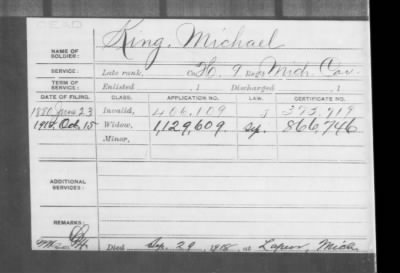 DEAD
NAME OF SOLDIER: King, Michael
SERVICE: Late rank, Co. H, 9 Reg't Mich. Cav.
TERM OF SERVICE: Enlisted , 1 Discharged , 1
DATE OF FILING. CLASS. APPLICATION NO. LAW. CERTIFICATE NO.
June 23 Invalid, 406,109
1918, Oct. 15 Widow, 1,129,609. 866,746
Minor,
ADDITIONAL SERVICES:
REMARKS:
Died Sep. 29, 1918, at Lapeer, Mich.